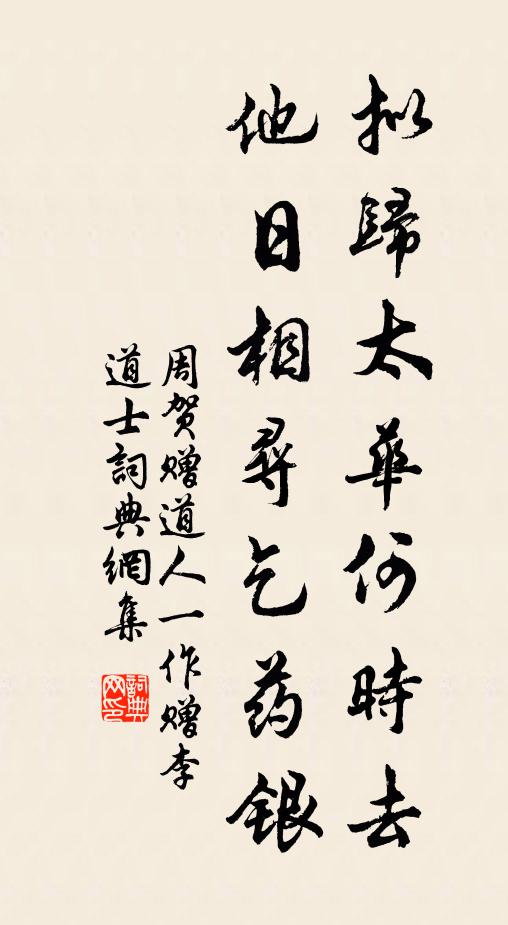 拟歸太華何時去
他日相尋乞药銀
周贺赠道人一作赠李
道士詞典網集
詞典网印